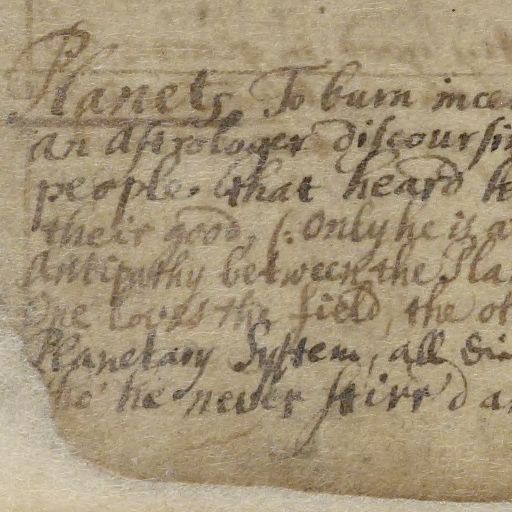 Planets To burn ince
an Astrologer discoursin
people. that heard h
their good, (: Only he is a
Antipathy between the Pla
One loves the field, the ot
Planetary System, all di
tho' he never stirr'd a